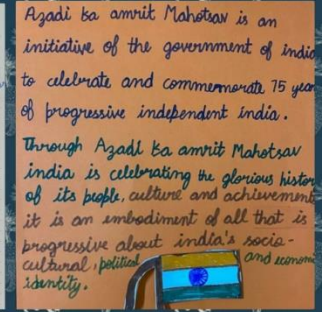 Azadi ka amrit Mahotsav is an
initiative of the government of india
to celebrate and commemorate 75 year
of progressive independent india.
Through Azadi ka amrit Mahotsav
india is celebrating the glorious histor
of its people, culture and achievement
it is an embodiment of all that is
progressive about india's socio-
cultural, political and economi
identity.